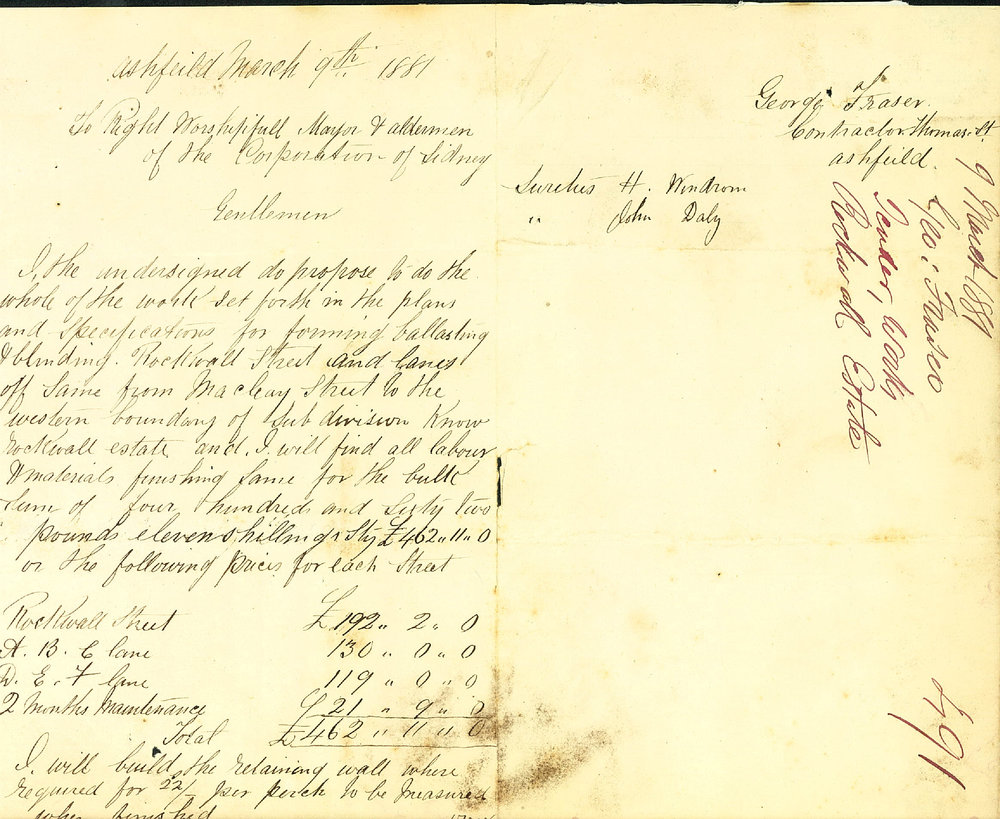 ashfeild March 9th 1881
To Right Worshipfull Mayor & aldermen
of the Corporation of Sidney
Gentlemen
I, the undersigned do propose to do the
whole of the work set forth in the plans
and specifications for forming ballasting
& blinding. Rockwall Street and lanes
off same from Macleay Street to the
western boundary of sub division Know
Rockwall estate and. I will find all labour
& materials finishing same for the bulk
sum of four hundred and sixty two
pounds eleven shillings Stg £462 " 11 " 0
or the following prices for each Street
Rockwall Street £192 " 2 " 0
A. B. C lane 130 " 0 " 0
D. E. F lane 119 " 0 " 0
2 Months Maintenance £21 " 9 " 0
Total £462 " 11 " 0
I. will build the retaining wall where
required for 22/- per perch to be measured
when finished
George Fraser.
Contractor Thomas St.
ashfeild.
Sureties H. Windrom
" John Daly
9 March 1881
Geo: Fraser
Tender, Work
Rockwall Estate
491